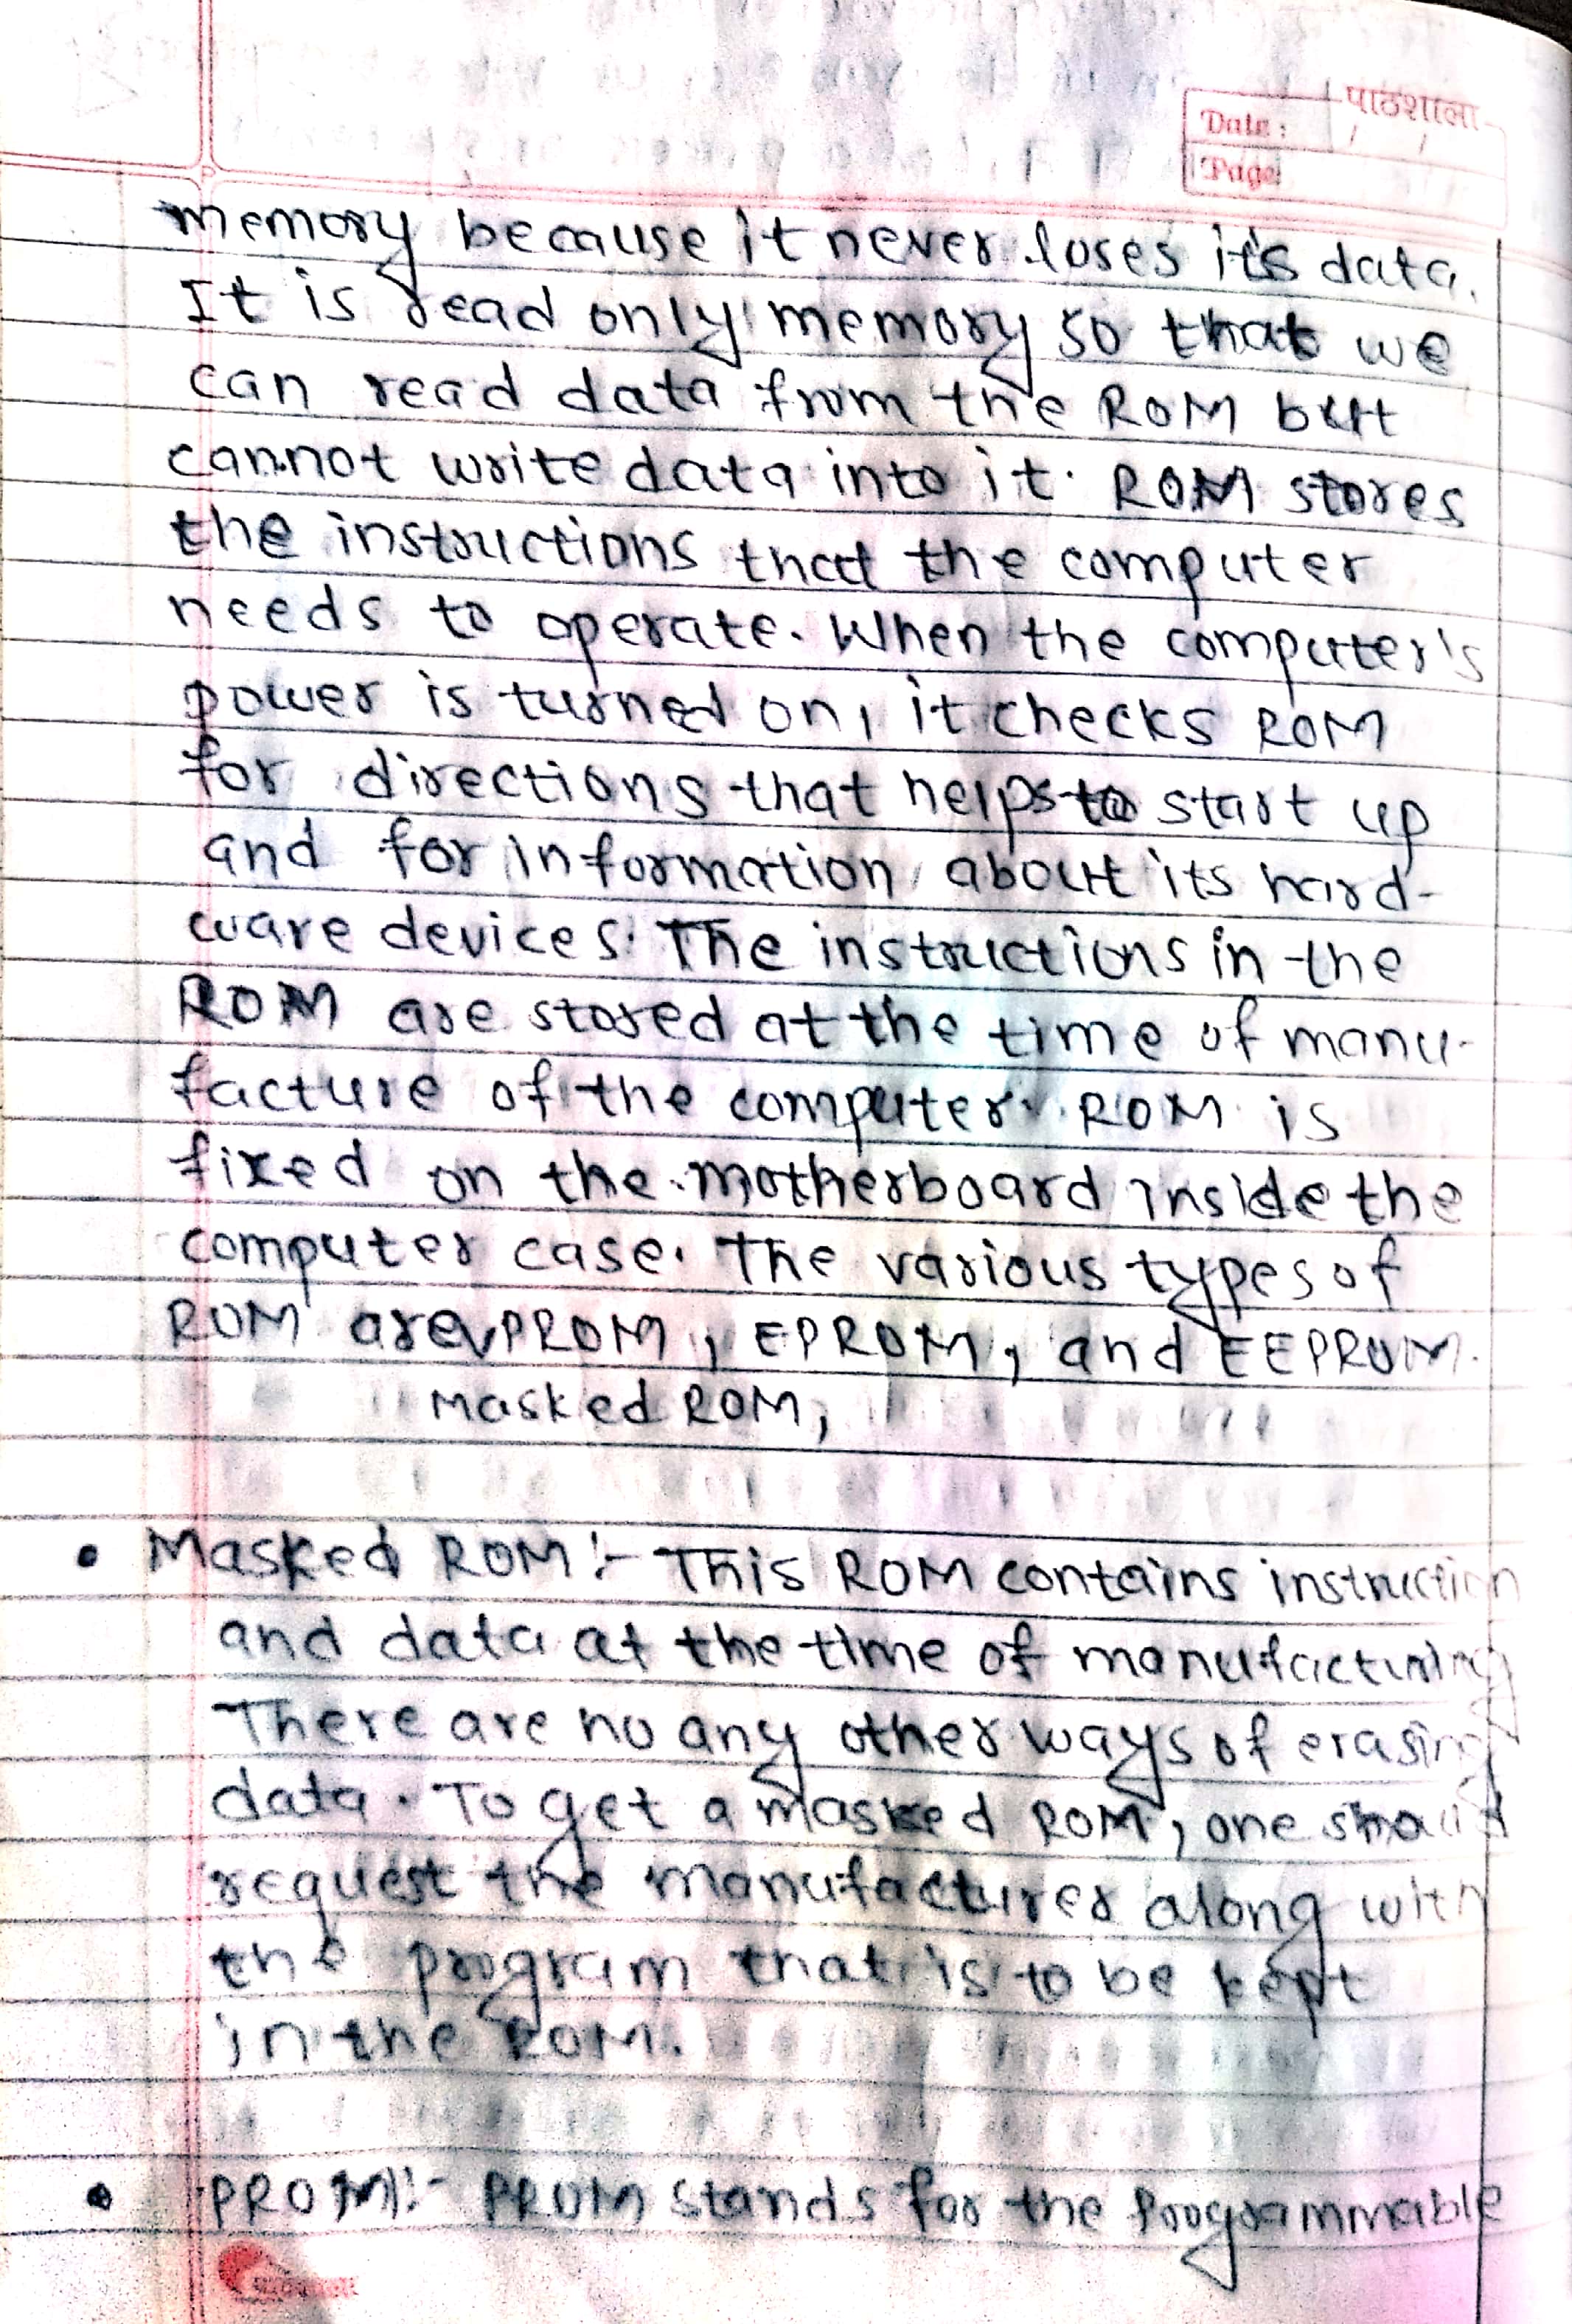 पाठशाला
Date : / /
Page
memory because it never loses it's data.
It is read only memory so that we
can read data from the ROM but
cannot write data into it. ROM stores
the instructions that the computer
needs to operate. When the computer's
power is turned on, it checks ROM
for directions that helps to start up
and for information about its hard-
ware devices. The instructions in the
ROM are stored at the time of manu-
facture of the computer. ROM is
fixed on the motherboard inside the
computer case. The various types of
ROM are PROM, EPROM, and EEPROM.
Masked ROM,
• Masked ROM :- This ROM contains instruction
and data at the time of manufacturing
There are no any other ways of erasing
data. To get a masked ROM, one should
request the manufacturer along with
the program that is to be kept
in the ROM.
• PROM :- PROM stands for the Programmable